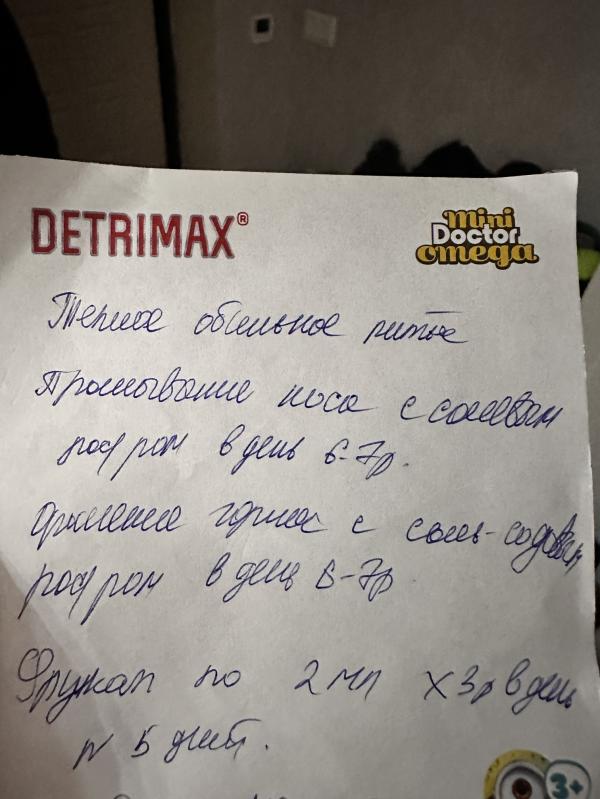 DETRIMAX®
mini Doctor omega
Теплое обильное питье
Промывание носа с солевым
раствором в день 6-7р.
горла с соль-содовым
раствором в день 6-7р
по 2 мл х 3р в день
N 5 дней.
3+